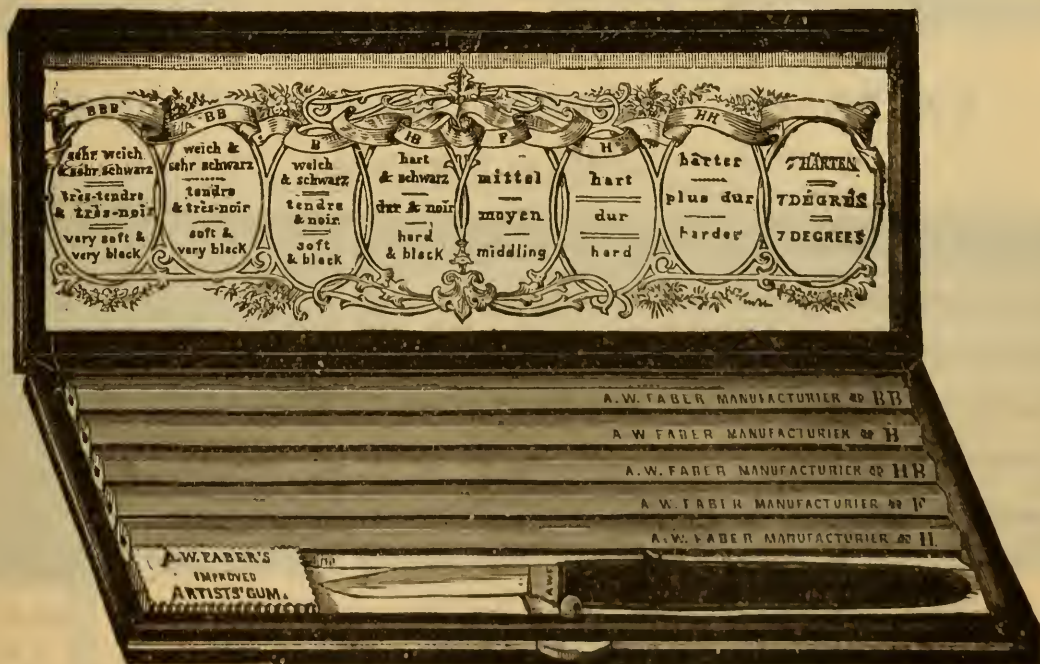 BBB
sehr weich
& sehr schwarz
très-tendre
& très-noir
very soft &
very black
BB
weich &
sehr schwarz
tendre
& très-noir
soft &
very black
B
weich
& schwarz
tendre
& noir
soft
& black
HB
hart
& schwarz
dur & noir
hard
& black
F
mittel
moyen
middling
H
hart
dur
hard
HH
härter
plus dur
harder
7 HÄRTEN
7 DÉGRÉS
7 DEGREES
A.W. FABER MANUFACTURIER BB
A W FABER MANUFACTURIER B
A.W. FABER MANUFACTURIER HB
A.W. FABER MANUFACTURIER F
A.W. FABER MANUFACTURIER H
A.W. FABER'S
IMPROVED
ARTISTS' GUM.
A.W.F